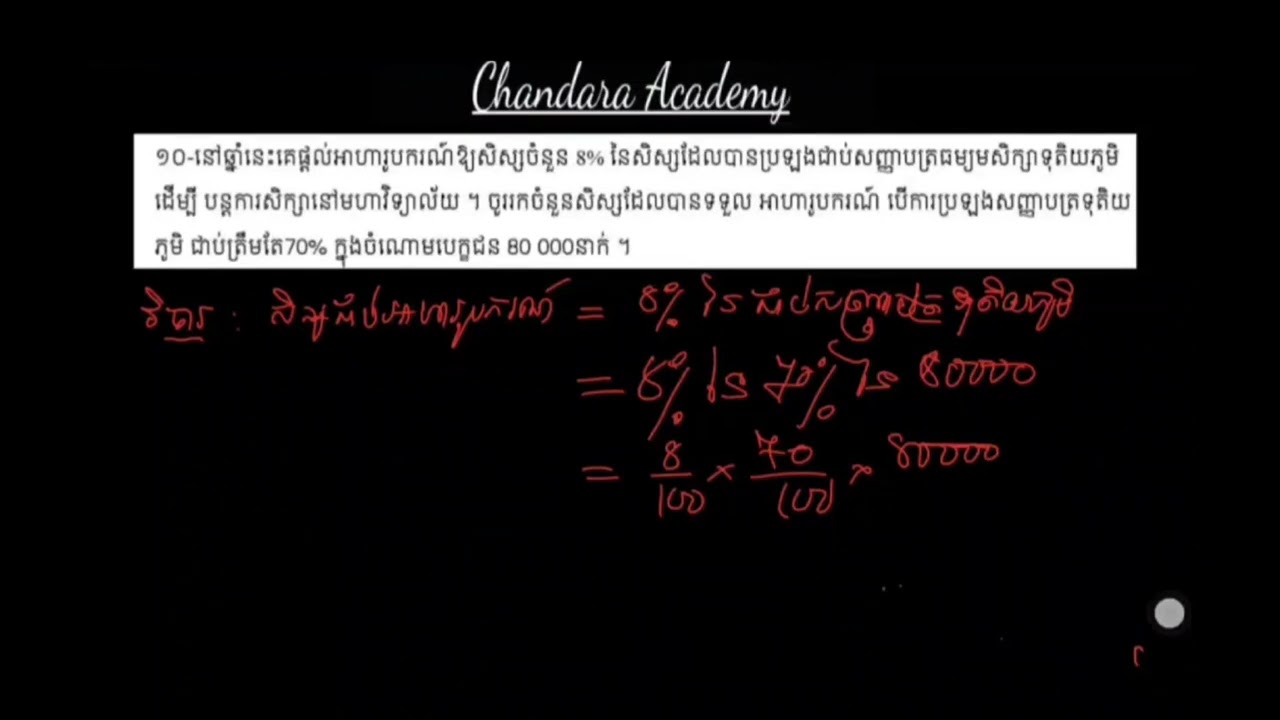 Chandara Academy
១០-នៅឆ្នាំនេះគេផ្តល់អាហារូបករណ៍ឱ្យសិស្សចំនួន 8% នៃសិស្សដែលបានប្រឡងជាប់សញ្ញាបត្រមធ្យមសិក្សាទុតិយភូមិ
ដើម្បី បន្តការសិក្សានៅមហាវិទ្យាល័យ ។ ចូររកចំនួនសិស្សដែលបានទទួល អាហារូបករណ៍ បើការប្រឡងសញ្ញាបត្រទុតិយ
ភូមិ ជាប់ត្រឹមតែ70% ក្នុងចំណោមបេក្ខជន 80 000នាក់ ។
វិចារ : សិស្សជាប់អាហារូបករណ៍ = 8% នៃ ជាប់សញ្ញាបត្រ ទុតិយភូមិ
= 8% នៃ 70% នៃ 80000
= 8/100 × 70/100 × 80000